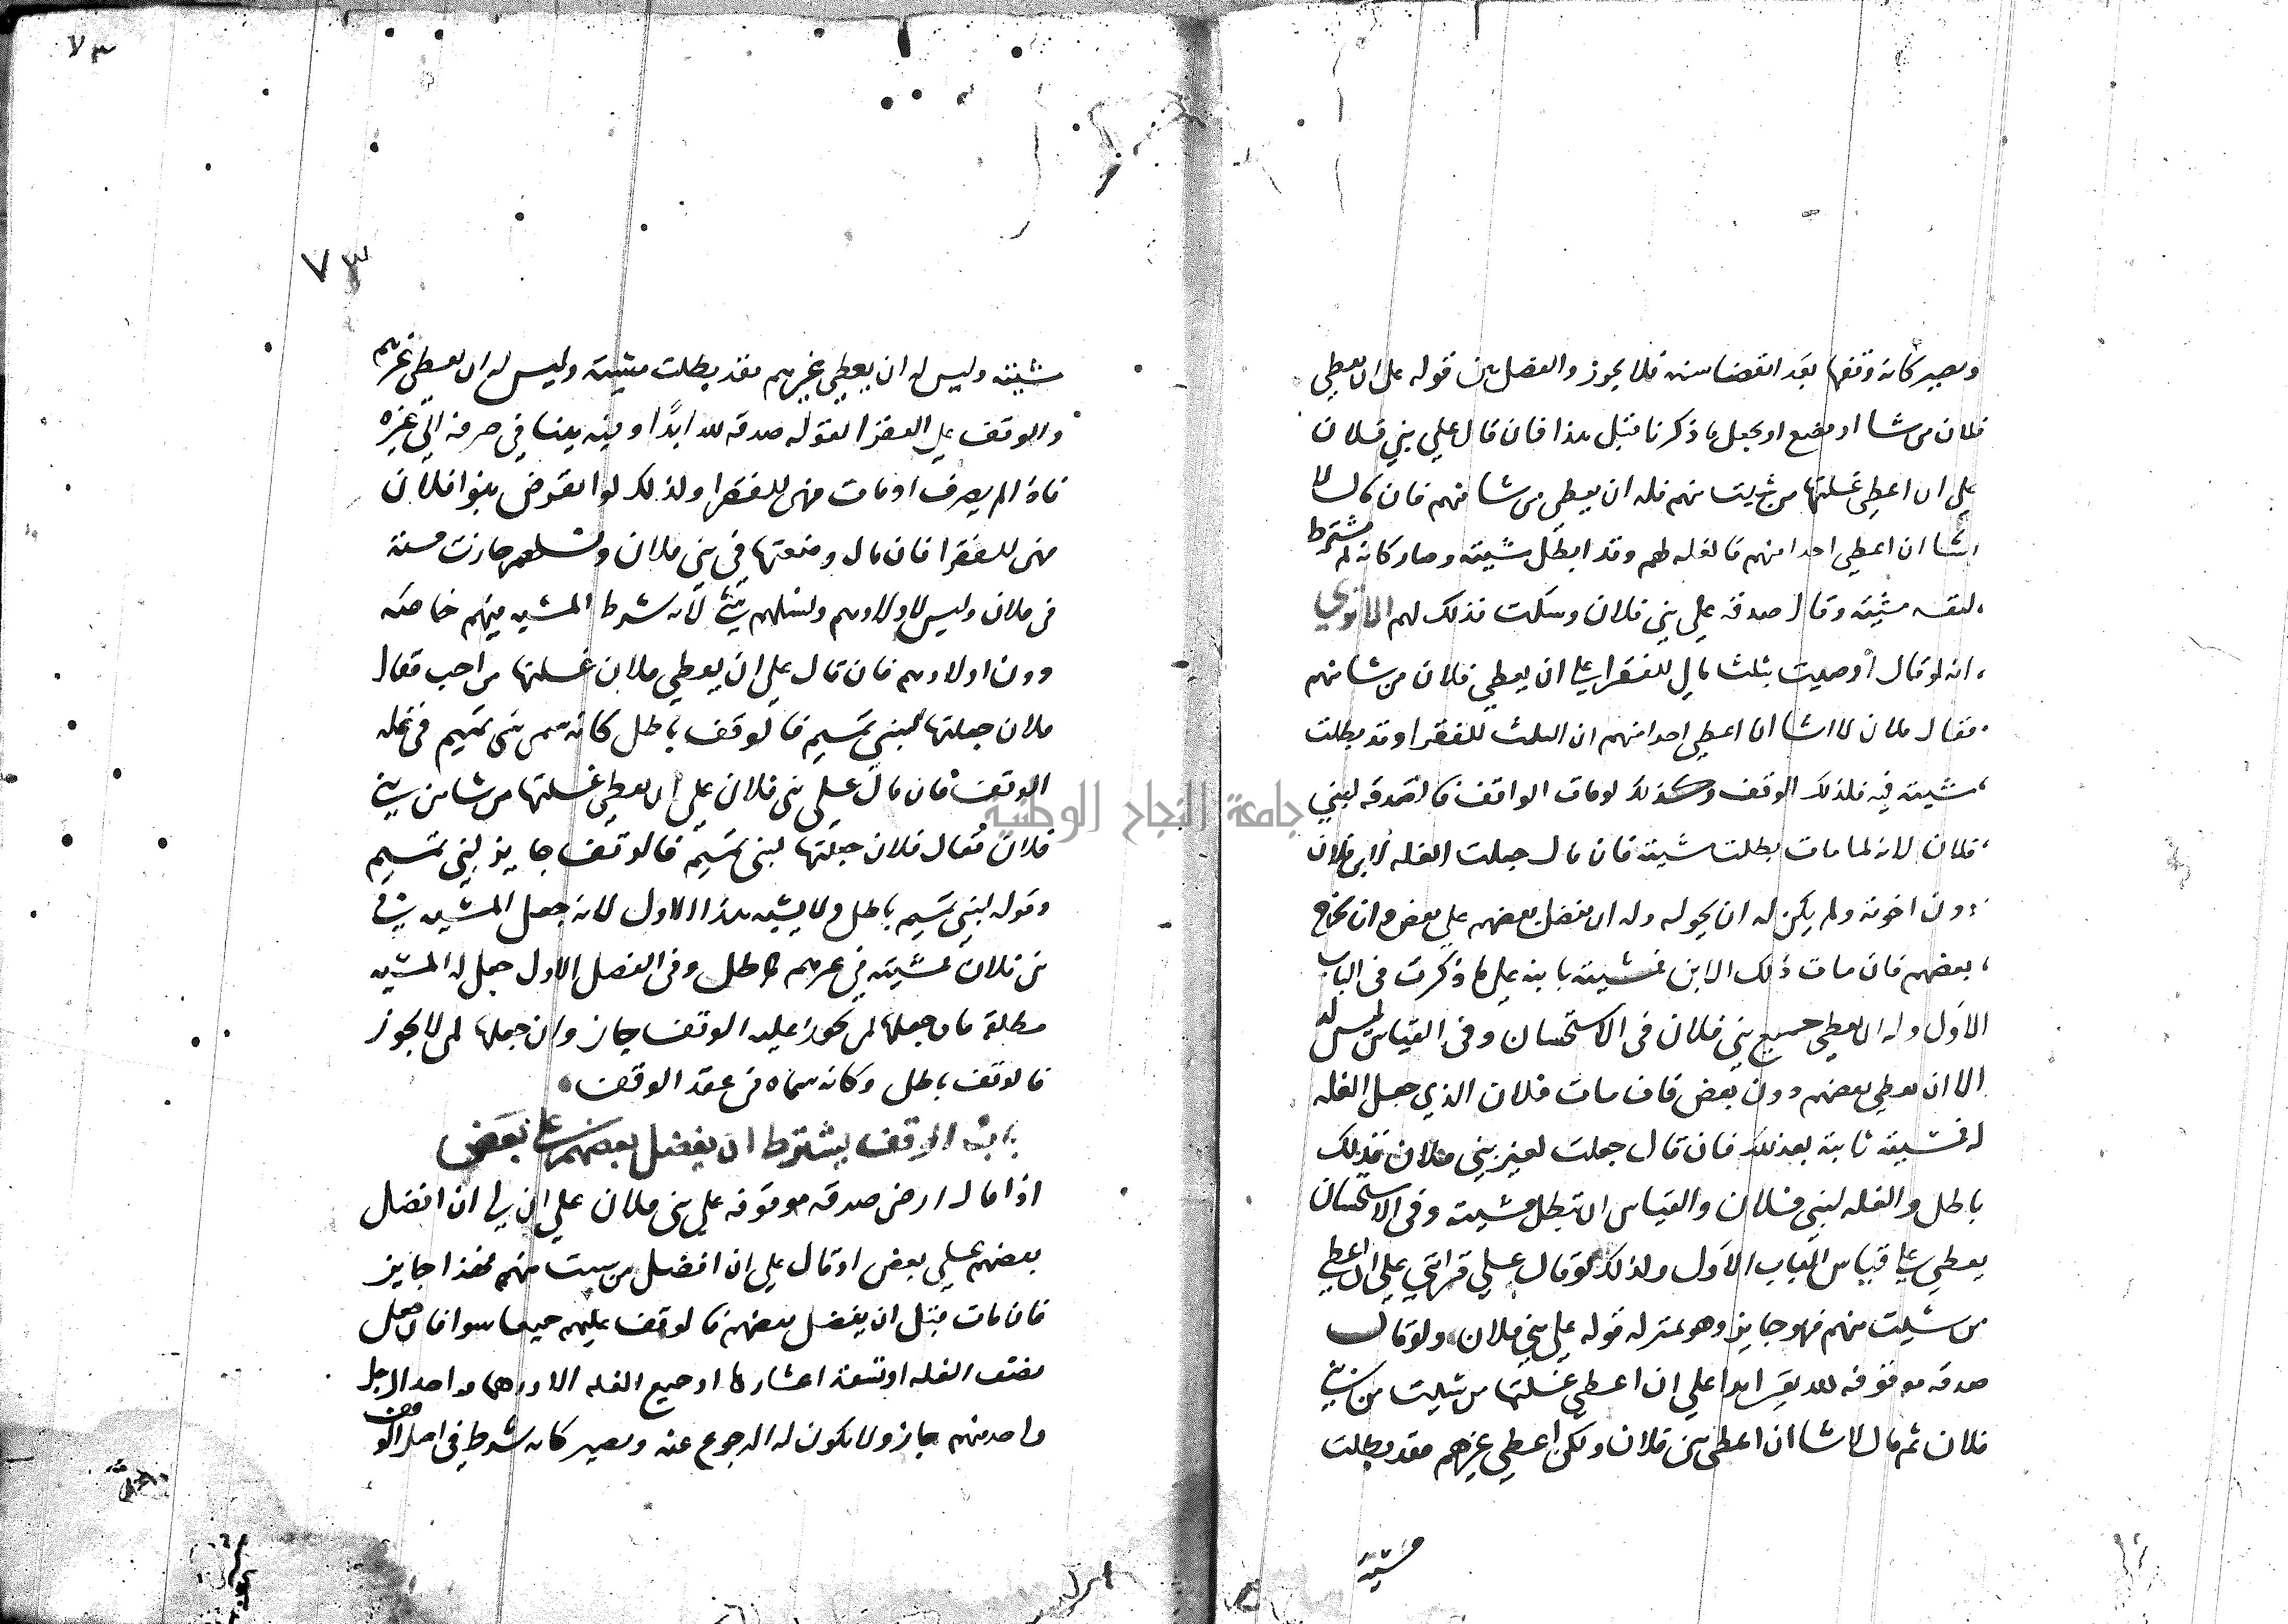 ويصير كانه وقفها بعد انقضا سنه فلا يجوز والفصل بين قوله على ان يعطي
فلان من شا او يضع او يجعل ما ذكرنا قبل هذا فان قال علي بني فلان
علي ان اعطي غلتها من شيت منهم فله ان يعطي من شا منهم فان قال لا
اشا ان اعطي احدا منهم فالغله لهم وقد ابطل مشيته وصار كانه لم يشترط
لنفسه مشيته وقال صدقه علي بني فلان وسكت فذلك لهم الا تري
انه لو قال اوصيت بثلث مالي للفقرا علي ان يعطي فلان من شا منهم
فقال فلان لا اشا ان اعطي احدا منهم ان الثلث للفقرا وقد بطلت
مشيته فيه فلذلك الوقف وكذلك لو مات الواقف فالصدقه لبني
فلان لانه لما مات بطلت مشيته فان قال جعلت الغله لابن فلان
دون اخوته ولم يكن له ان يحوله وله ان يفضل بعضهم علي بعض وان يخرج
بعضهم فان مات ذلك الابن فمشيته ثابته علي ما ذكرت في الباب
الاول وله ان يعطي جميع بني فلان في الاستحسان وفي القياس ليس له
الا ان يعطي بعضهم دون بعض فان مات فلان الذي جعل الغله
له فمشيته ثابته بعد ذلك فان قال جعلت لغير بني فلان فذلك
باطل والغله لبني فلان والقياس ان تبطل مشيته وفي الاستحسان
يعطي علي قياس الباب الاول ولذلك لو قال علي قرابتي علي ان اعطي
من شيت منهم فهو جايز وهو بمنزله قوله علي بني فلان ولو قال
صدقه موقوفه لله ابدا علي ان اعطي غلتها من شيت من بني
فلان ثم قال لا اشا ان اعطي بني فلان ولكن اعطي غيرهم فقد بطلت
مشيته
٧٣
٧٣
مشيته وليس له ان يعطي غيرهم فقد بطلت مشيته وليس له ان يعطي غيرهم
والوقف علي الفقرا لقوله صدقه لله ابدًا
فاذا لم يصرف او مات فهي للفقرا ولذلك لو انقرض بنوا فلان
فهي للفقرا فان قال وضعتها في بني فلان ونسلهم جازت مشيته
في فلان وليس لاولادهم ونسلهم شي لانه شرط المشيه فيهم خاصه
دون اولادهم فان قال علي ان يعطي فلان غلتها من احب فقال
فلان جعلتها لبني تميم فالوقف باطل كانه سمى بني تميم في غله
الوقف فان قال علي بني فلان علي ان يعطي غلتها من شا من بني
فلان فقال فلان جعلتها لبني تميم فالوقف جايز لبني تميم
وقوله لبني تميم باطل ولا يشبه هذا الاول لانه جعل المشيه في
بني فلان فمشيته في غيرهم باطل وفي الفصل الاول جعل له المشيه
مطلقه فان جعلها لمن يجوز عليه الوقف جاز وان جعلها لمن لا يجوز
فالوقف باطل وكانه سماه في عقد الوقف
باب الوقف يشترط ان يفضل بعضهم علي بعض
اذا قال ارض صدقه موقوفه علي بني فلان علي ان لي ان افضل
بعضهم علي بعض او قال علي ان افضل من شيت منهم فهذا جايز
فان مات قبل ان يفضل بعضهم فالوقف عليهم جميعا سوا فان جعل
نصف الغله او تسعة اعشارها او جميع الغله الا درهما واحدا لرجل
واحد منهم جاز ولا يكون له الرجوع عنه ويصير كانه شرط في اصل الوقف
جامعة النجاح الوطنية